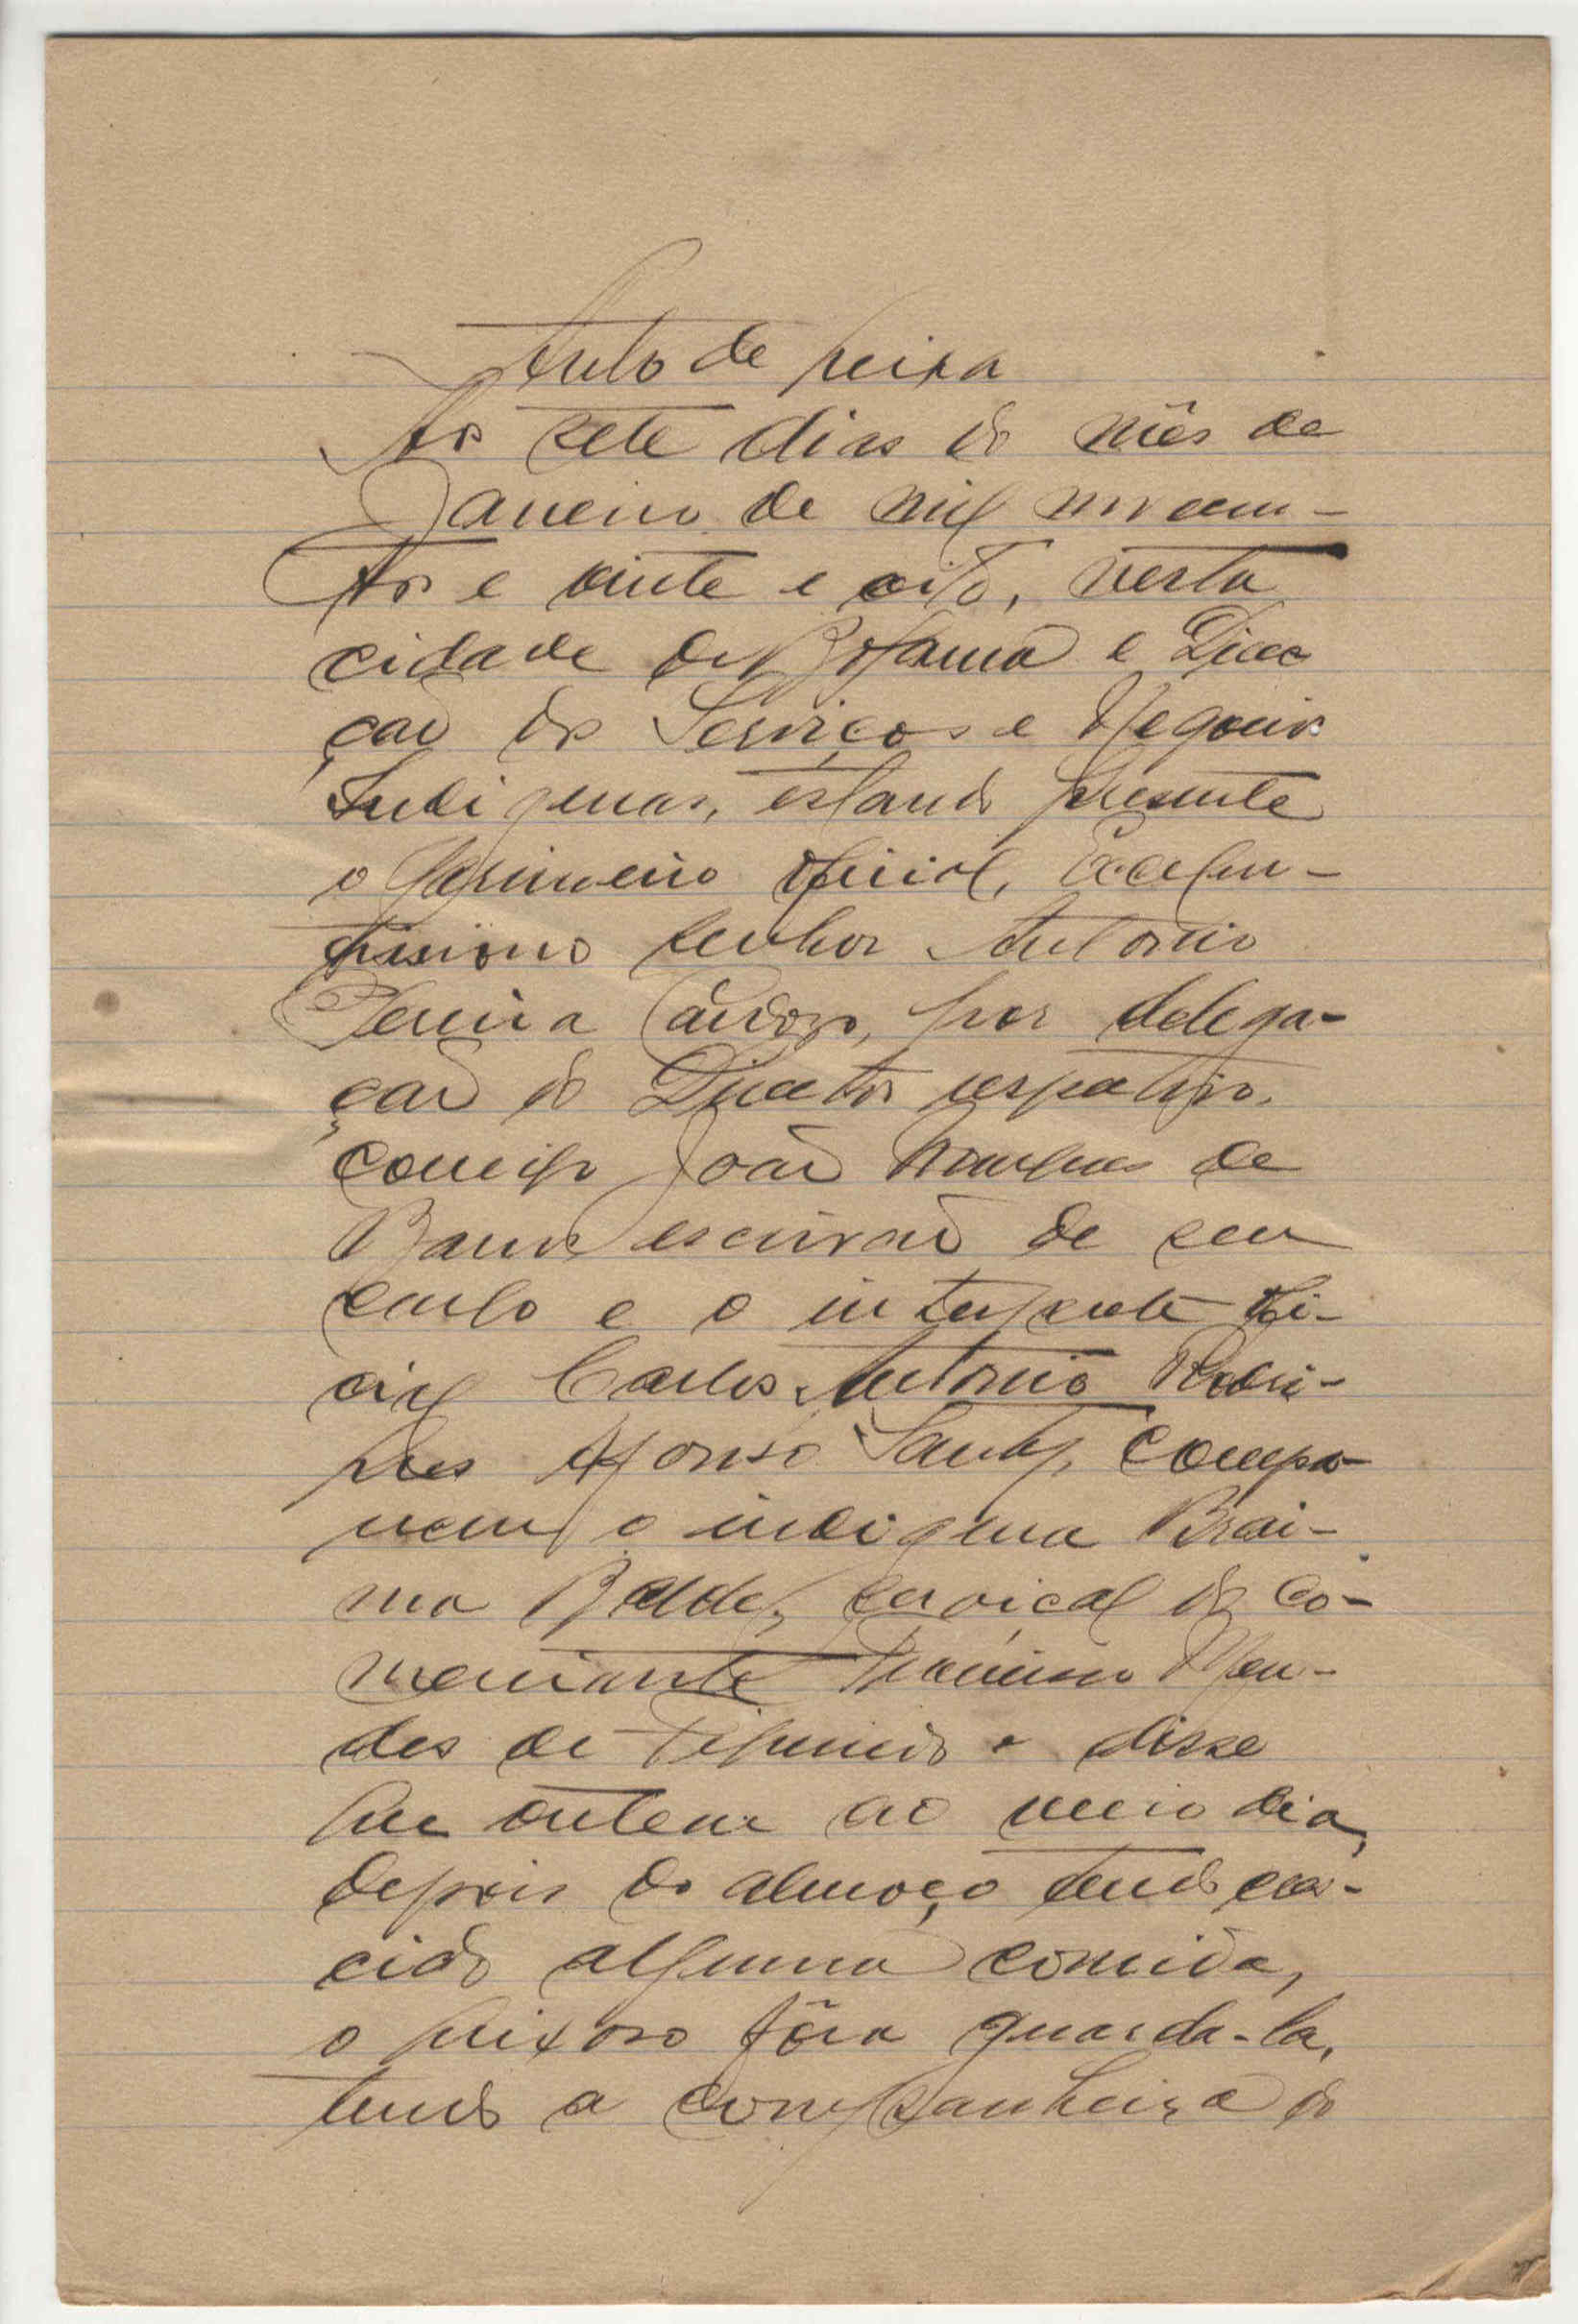 Auto de queixa
Aos sete dias do mês de
Janeiro de mil novecen-
tos e vinte e oito, nesta
cidade de Bolama e Direc
ção dos Serviços e Negocios
Indigenas, estando presente
o primeiro oficial, Excelen-
tissimo senhor Antonio
Pereira Cardoso, por delega-
ção do Director respectivo,
comigo João Marques de
Barros escrivão de seu
cargo e o interprete ofi-
cial Carlos Antonio Rodri-
gues Afonso Santy, compa-
receu o indigena Brai-
ma Balde, serviçal do co-
merciante Mendes
des de e disse
que ontem ao meio dia,
depois do almoço tendo cres-
cido alguma comida,
o queixoso fôra guarda-la,
tendo a companheira do